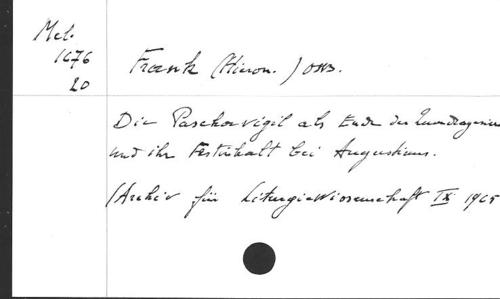 Mel.
1676
20
Frank (Hieron.) OSB.
Die Paschavigil als Ende der Quadragesima
und ihr Festinhalt bei Augustinus.
(Archiv für Liturgiewissenschaft IX 1965